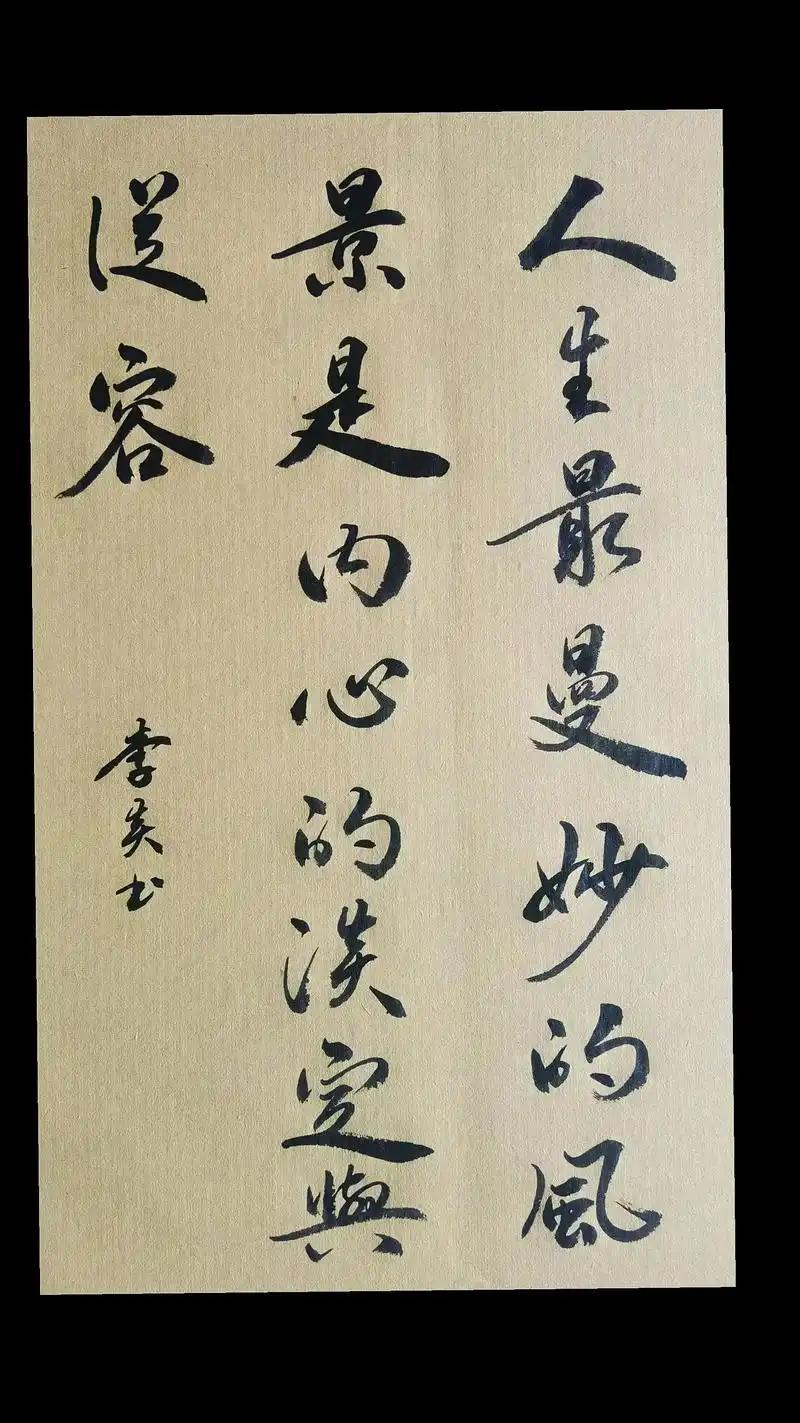 人生最曼妙的風
景是內心的淡定與
從容
李英书